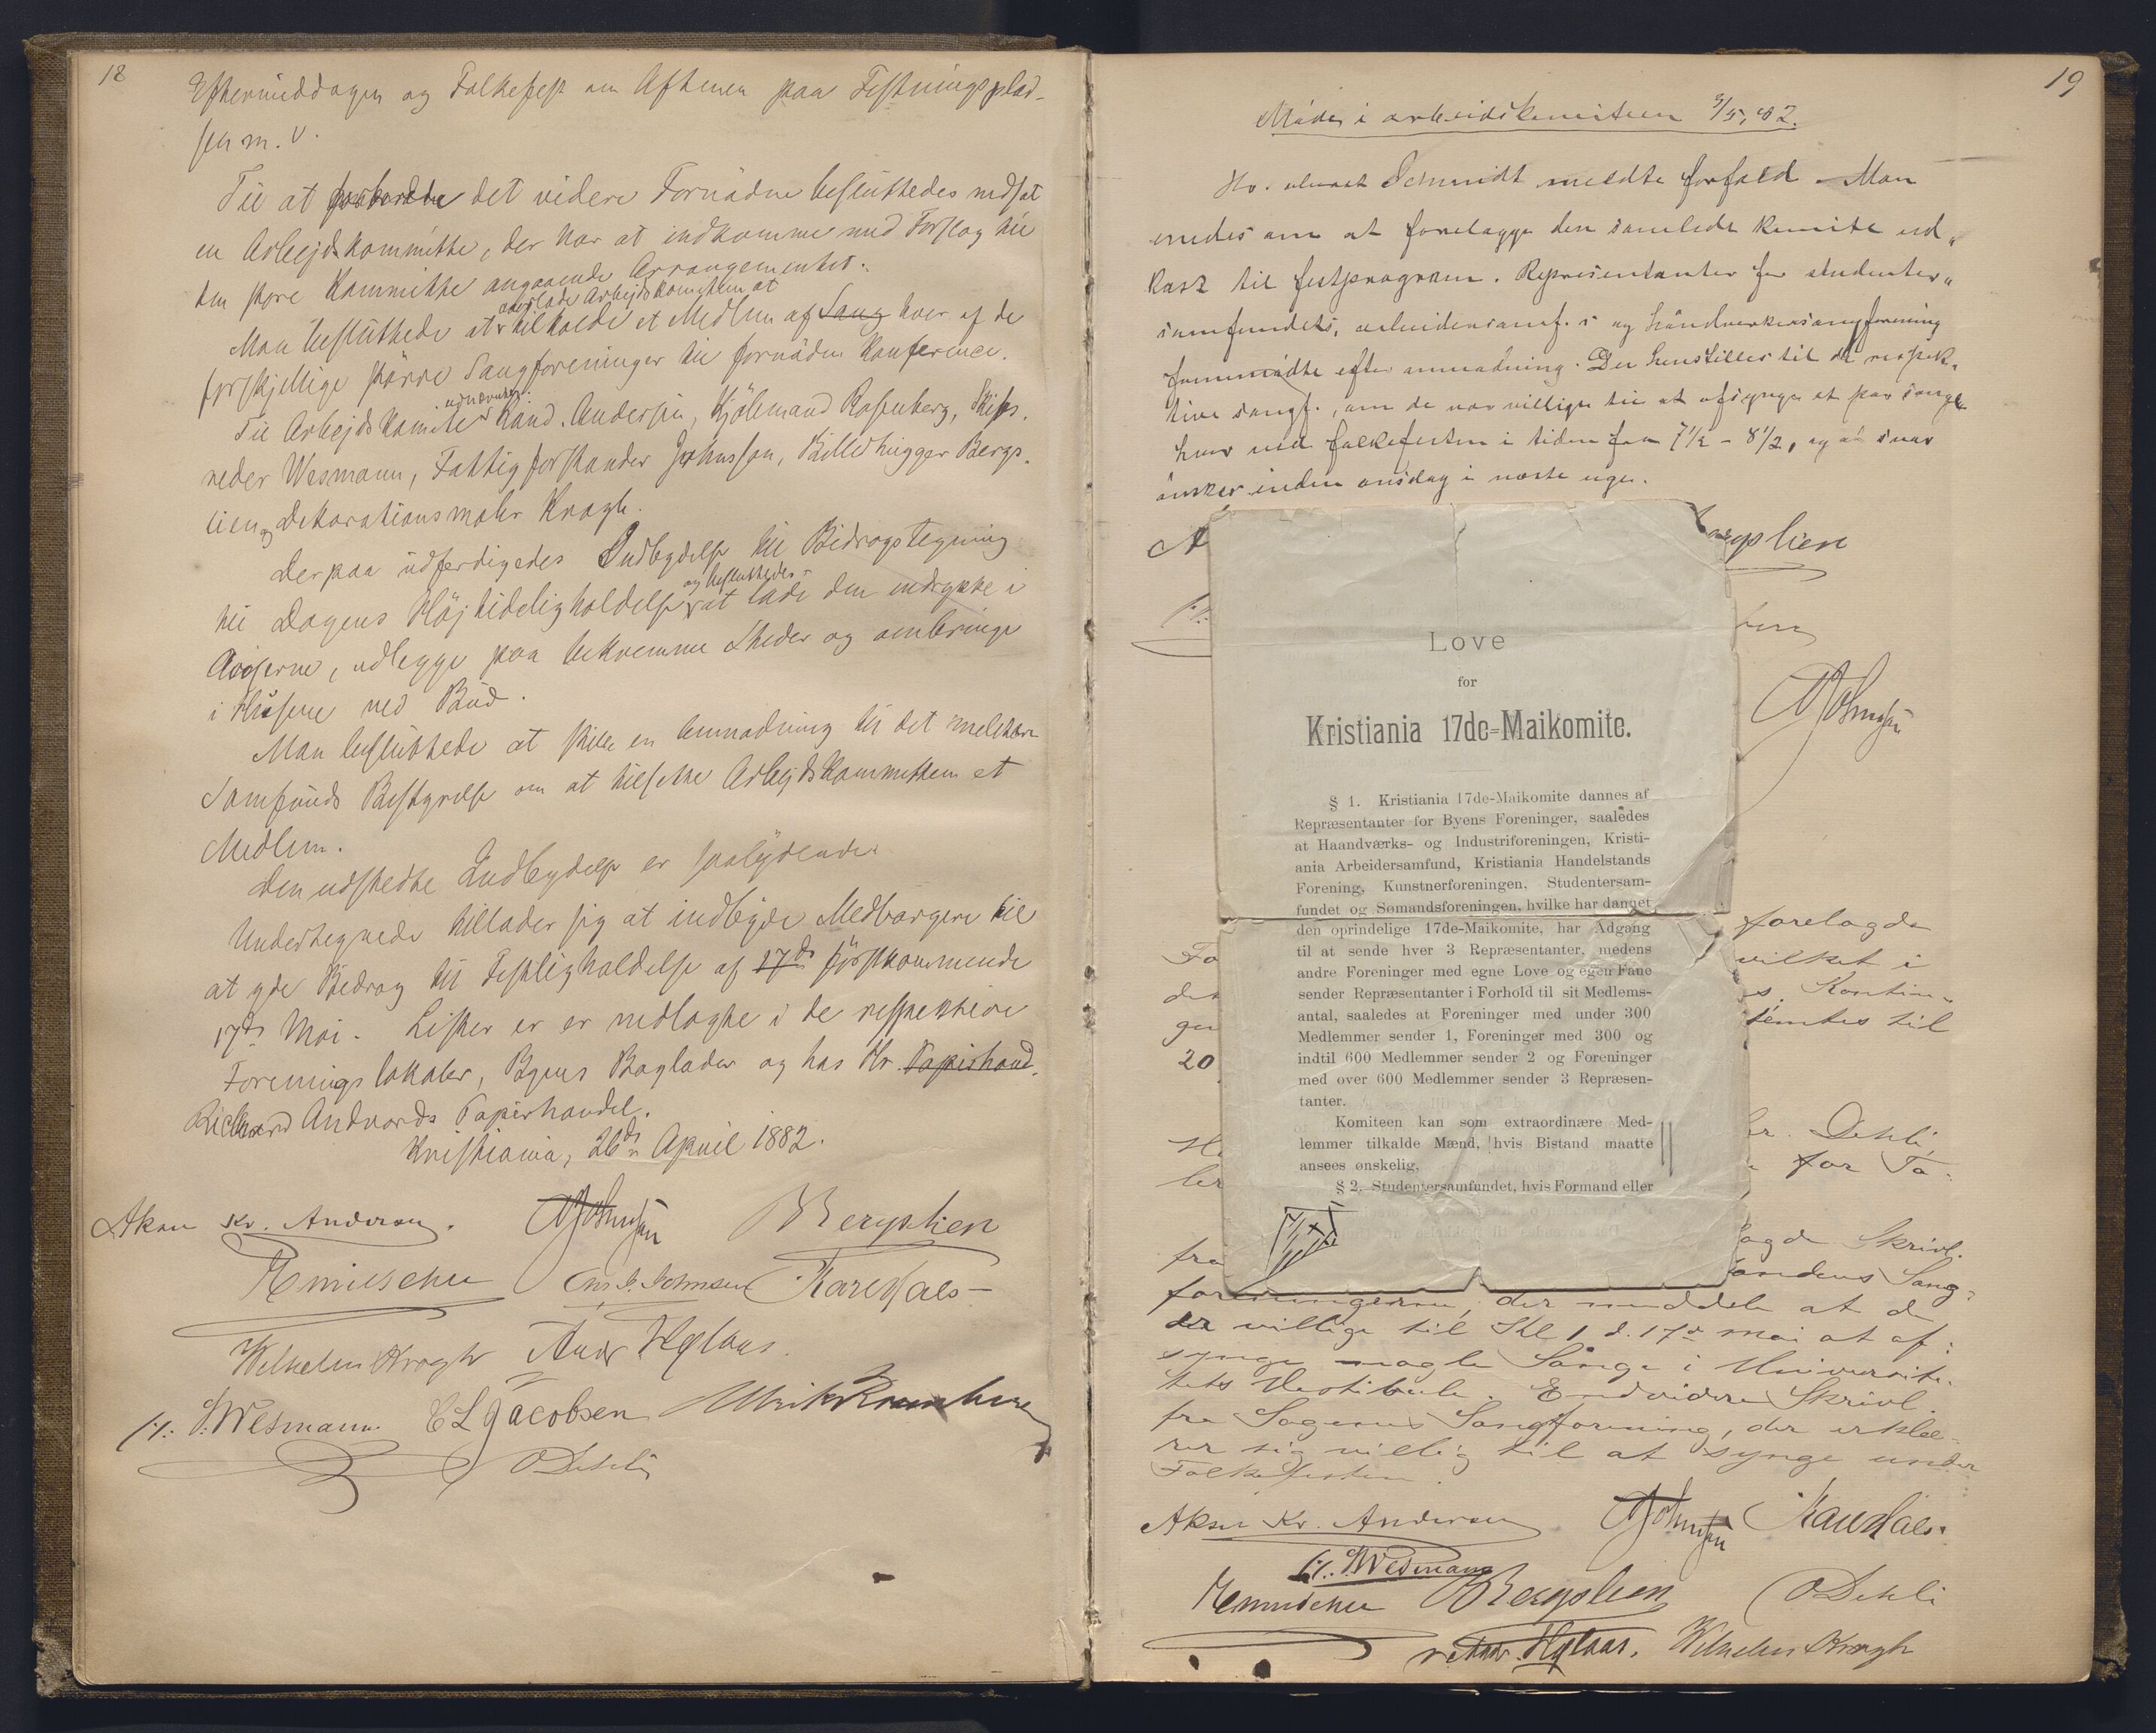 18
Eftermiddagen og Folkefest om Aftenen paa Festningsplad-
sen m. v.
Til at det videre Fornødne besluttedes nedsat
en Arbejdskommitte, der har at indkomme med Forslag til
den store Kommitte angaaende Arrangementet.
overlade Arbejdskomiteen at
Man besluttede at tilkalde et Medlem af Sang hver af de
forskjellige større Sangforeninger til fornøden Konference.
udnævntes:
Til Arbejdskomite Kand. Andersen, Hjölemand Rosenberg, Skibs-
reder Wesmann, Fattigforstander Johnsson, Billedhugger Bergs-
lien og Dekorationsmaler Krogh.
Derpaa udferdigedes Indbydelse til Bidragstegning
og besluttedes
til Dagens Højtideligholdelse at lade den indrykke i
Aviserne, udlegge paa bekvemme Steder og ombringe
i Husene ved Bud.
Man besluttede at stille en Anmodning til det militære
Samfunds Bestyrelse om at tilsette Arbejdskommitteen et
Medlem.
Den udstedte Indbydelse er saalydende:
Undertegnede tillader sig at indbyde Medborgere til
at yde Bidrag til Festligholdelse af 17de förstkommende
17de Mai. Lister er er nedlagte i de respektive
Foreningslokaler, Byens Boglader og hos Hr. Papirhand-
Richard Andvords Papirhandel.
Kristiania, 26de April 1882.
Aksu Kr. Andersen. Johnsson Bergslien
Chs. G. Johnsen Karl Hals
Wilhelm Krogh Andr Hglaus.
P. Wesmann C L Jacobsen
O Dehli
19
Möde i arbeidskomiteen 3/5, 82.
Hr. Schmidt meldte forfald. Man
enedes om at forelægge den samlede komite ud-
kast til festprogram. Repræsentanter for studenter-
samfundets, arbeidersamf. s og håndverkersangforening
fremmödte efter anmodning. Der henstilles til de respek-
tive sangf., om de var villige til at afsynge et par sange
hver ved folkefesten i tiden fra 7½ - 8½, og at svar
önskes inden onsdag i næste uge.
A
Bergslien
Johnsson
Love
for
Kristiania 17de-Maikomite.
§ 1. Kristiania 17de-Maikomite dannes af
Repræsentanter for Byens Foreninger, saaledes
at Haandværks- og Industriforeningen, Kristi-
ania Arbeidersamfund, Kristiania Handelstands
Forening, Kunstnerforeningen, Studentersam-
fundet og Sømandsforeningen, hvilke har dannet
den oprindelige 17de-Maikomite, har Adgang
til at sende hver 3 Repræsentanter, medens
andre Foreninger med egne Love og egen Fane
sender Repræsentanter i Forhold til sit Medlems-
antal, saaledes at Foreninger med under 300
Medlemmer sender 1, Foreninger med 300 og
indtil 600 Medlemmer sender 2 og Foreninger
med over 600 Medlemmer sender 3 Repræsen-
tanter.
Komiteen kan som extraordinære Med-
lemmer tilkalde Mænd, hvis Bistand maatte
ansees ønskelig.
§ 2. Studentersamfundet, hvis Formand eller
Fo forelagde
det vilket i
gen s. Kontin-
20 temtes til
H r. Dehli,
ler for Ta-
agde Skrivl.
fra andens Sang-
foreningerne, der meddele at de
er villige til Kl 1 d. 17de mai at af-
synge nogle Sange i Universite-
tets Vestibule. Endvidere Skrivl.
fra Sagenes Sangforening, der erklæ-
rer sig villig til at synge under
Folkefesten.
Aksu Kr. Andersen Johnsson Karl Hals.
P. Wesmann
Bergslien O Dehli
Andr. Hglaus. Wilhelm Krogh